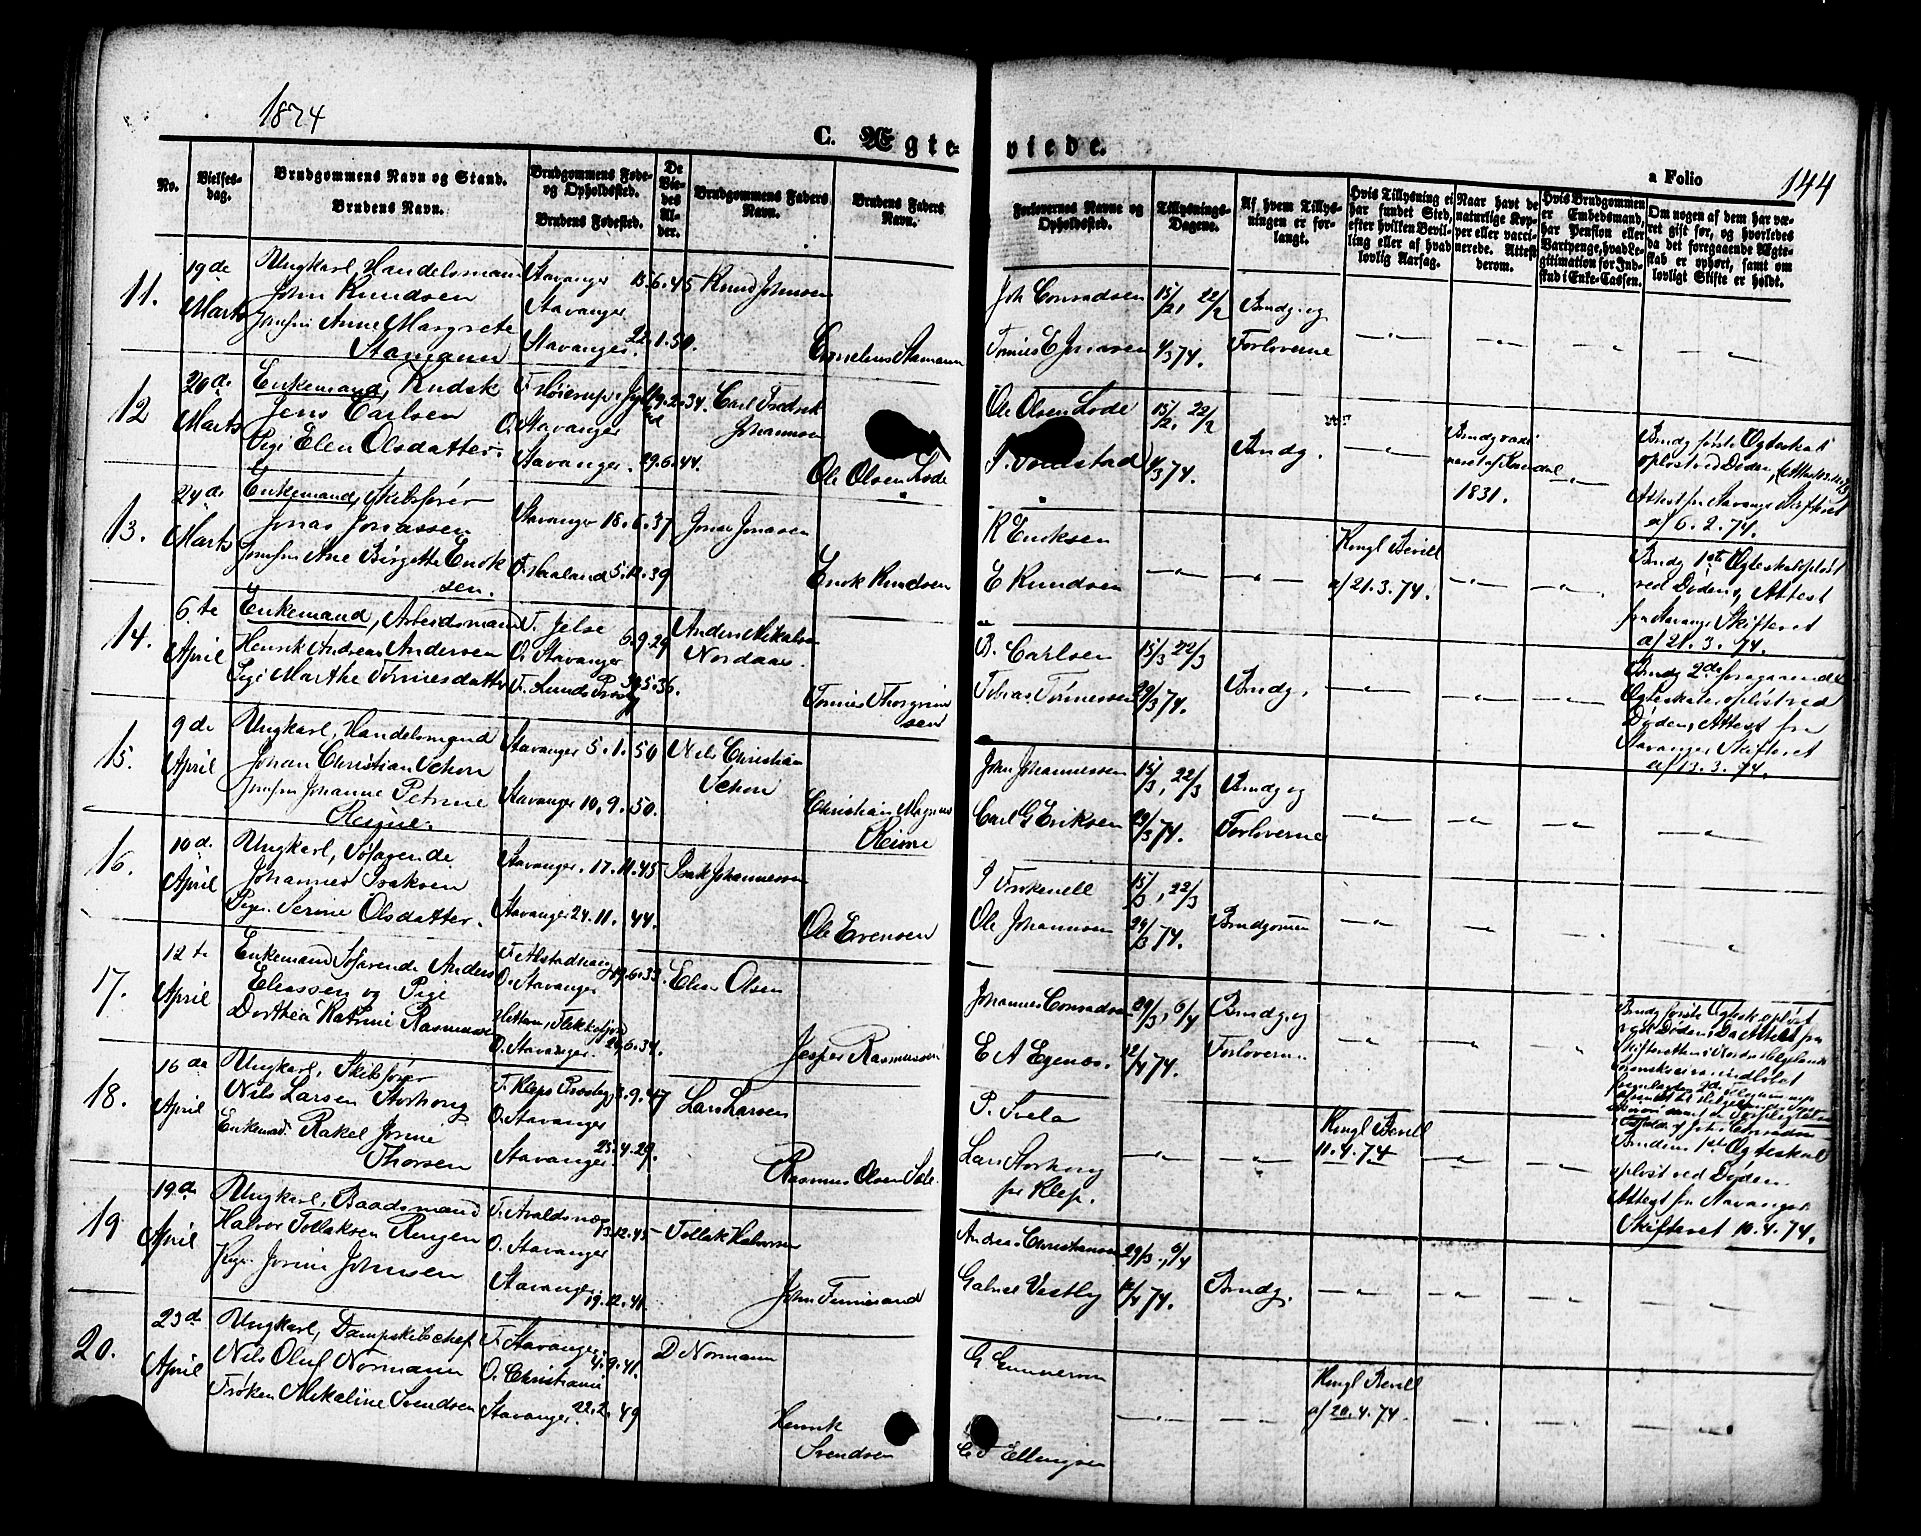 1874
C. Ægte- viede.
a Folio 144
No.
Vielses-dag.
Brudgommens Navn og Stand.
Brudens Navn.
Brudgommens Føde- og Opholdssted.
Brudens Fødested.
De Viedes Alder.
Brudgommens Faders Navn.
Brudens Faders Navn.
Forlovernes Navne og Opholdssted.
Tillysnings-Dagene.
Af hvem Tillysningen er forlangt.
Hvis Tillysning ei har fundet Sted, efter hvilken Bevilling eller af hvad lovlig Aarsag.
Naar havt de naturlige Kopper eller vaccinerede. Attest derom.
Hvis Brudgommen er Embedsmand, har Pension eller Vartpenge, hvad Legitimation for Indskud i Enke-Cassen.
Om nogen af dem har været gift før, og hvorledes da det foregaaende Ægteskab er ophørt, samt om lovligt Skifte er holdt.
11. 19de Marts
Ungkarl, Handelsmand
John Knudsen
Jomfru Anne Margrete
Stamann
Stavanger 15.6.45
Stavanger
Stavanger. 22.1.50.
Knud Johnsen
Cornelius Stamann
Joh Conradsen
15/2, 22/2
1/3 74.
Brudg. og
Forloverne
12 20de Marts
Enkemand,
Jens Carlsen
Pige Elen Olsdatter.
9.2.34.
O. Stavanger
Stavanger. 29.6.44.
Carl Fredrik
Johannsen
Ole Olsen Lode
Ole Olsen Lode
15/2, 22/2
1/3 74.
Brudg.
1831.
Brudg første Ægteskab
opløst ved Døden,
Attest fra Stavanger Skifteret
af 6.2.74.
13. 24de Marts
Enkemand, Skibsfører
Jonas Jonassen
Jomfru Ane Birgitte Enok
sen.
Stavanger 18.6.37
F. Haaland 5.12.39
Jonas Jonassen
Enok Knudsen
R Enoksen
E Knudsen
Kongl Bevill
af 21.3.74.
Brudg 1ste Ægteskab opløst
ved Døden, Attest
fra Stavanger Skifteret
af 21.3.74.
14. 6te April
Enkemand, Arbeidsmand
Henrik Andreas Andersen
Pige Marthe Tønnesdatter
F. Jelse 6.9.29
O. Stavanger
F. Lunds Præstg 5.36.
Anders Mikalsen
Nordaas.
Tønnes Thorgrim
sen
B. Carlsen
Tobias Tønnessen
15/3 22/3
29/3 74.
Brudg.
Brudg 2det foregaaende
Ægteskab opløst ved
Døden, Attest fra
Stavanger Skifteret
af 13.3.74.
15. 9de April
Ungkarl, Handelsmand
Johan Christian Schou
Jomfru Johanne Petrine
Reime.
Stavanger 5.1.50
Stavanger 10.9.50.
Nils Christian
Schou
Christian Magnus
Reime
John Johannessen
Carl G Eriksen
15/3, 22/3
29/3 74.
Brudg og
Forloverne
16. 10de April
Ungkarl, Søfarende
Johannes Isaksen
Pige Serine Olsdatter.
Stavanger. 17.11.45
Stavanger 24.11.44.
Isak Johannessen
Ole Evensen
Ole Johannsen
15/3, 22/3
29/3 74.
Brudgommen
17. 12te April
Enkemand Søfarende Anders
Eliassen og Pige
Dorthea Katrine Rasmussen
F. Alstadhaug 19.6.33.
O. Stavanger
Flekkefjord
O. Stavanger. 6.34.
Elias Olsen
Jesper Rasmussen
Johannes Conradsen
E A Egenes.
29/3, 6/4
12/4 74.
Brudg. og
Forlovern.
Brudg første Ægtesk opløst
ved Døden.
18. 16de April
Ungkarl, Skibsfører
Nils Larsen Storhoug
Enkemad. Rakel Jorine
Thorsen
F. Klep Præstg 3.9.47
O. Stavanger
Stavanger 25.4.29.
Lars Larsen
Rasmus Olsen
P. Svela
Lars Storhoug
pr Klep.
Kongl Bevill
11.4.74
Brudens 1ste Ægteskab
opløst ved Døden.
Attest fra Stavanger
Skifteret 10.4.74.
19 19de April
Ungkarl, Baadsmand
Halvor Tollaksen Ringen
Pige Jorine Johnsen
F. Avaldsnæs 13.12.45
O. Stavanger
Stavanger 19.12.41.
Tollak Halvorsen
Andreas Christiansen
Gabriel Vestby
29/3, 6/4
12/4 74.
Brudg.
20. 23de April
Ungkarl, Dampskibschef
Nils Oluf Normann
Frøken Mikaline Svendsen
F. Stavanger
O. Christiania 4.9.41.
Stavanger. 22.2.49
D Normann
Henrik
Svendsen
G Gundersen
C F Ellingsen
Kongl Bevill
af 20.4.74.